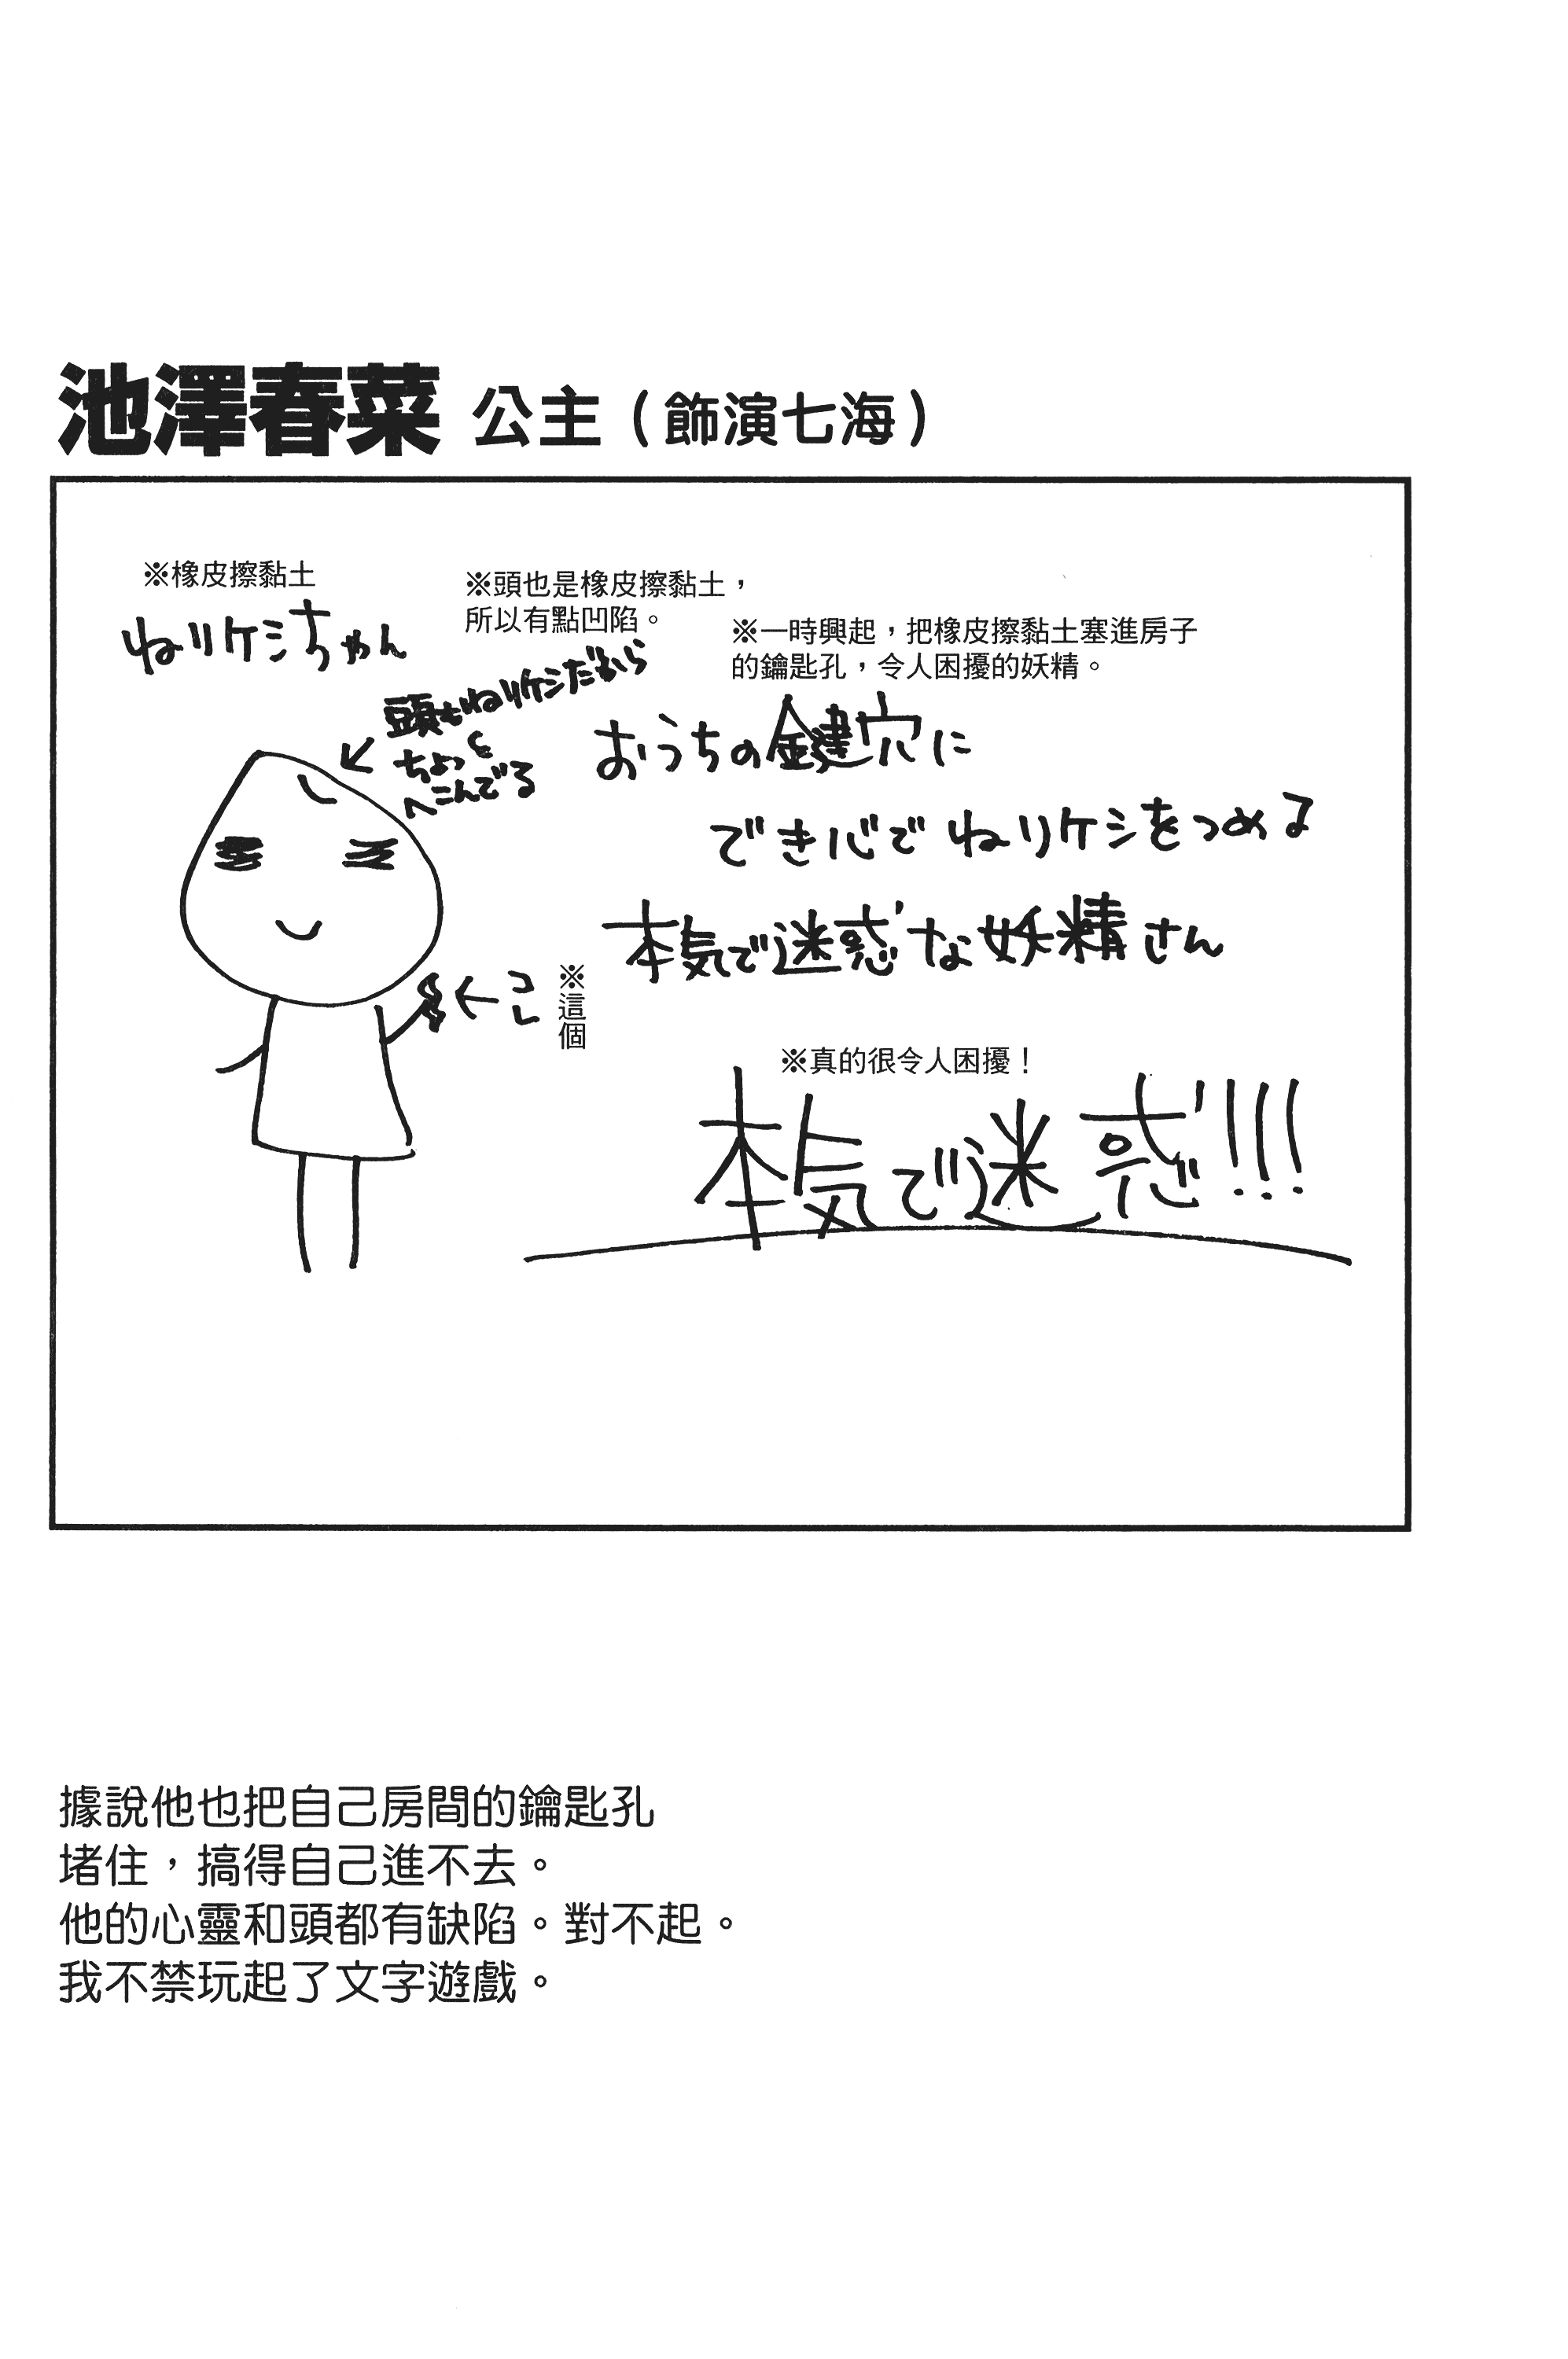 池澤春菜 公主（飾演七海）
※橡皮擦黏土
ねりケシちゃん
※頭也是橡皮擦黏土，
所以有點凹陷。
頭もねりケシだから
ちょっと
へこんでる
※一時興起，把橡皮擦黏土塞進房子
的鑰匙孔，令人困擾的妖精。
おうちの鍵穴に
でき心でねりケシをつめる
本気で迷惑な妖精さん
←コレ
※這個
※真的很令人困擾！
本気で迷惑!!!
據說他也把自己房間的鑰匙孔
堵住，搞得自己進不去。
他的心靈和頭都有缺陷。對不起。
我不禁玩起了文字遊戲。